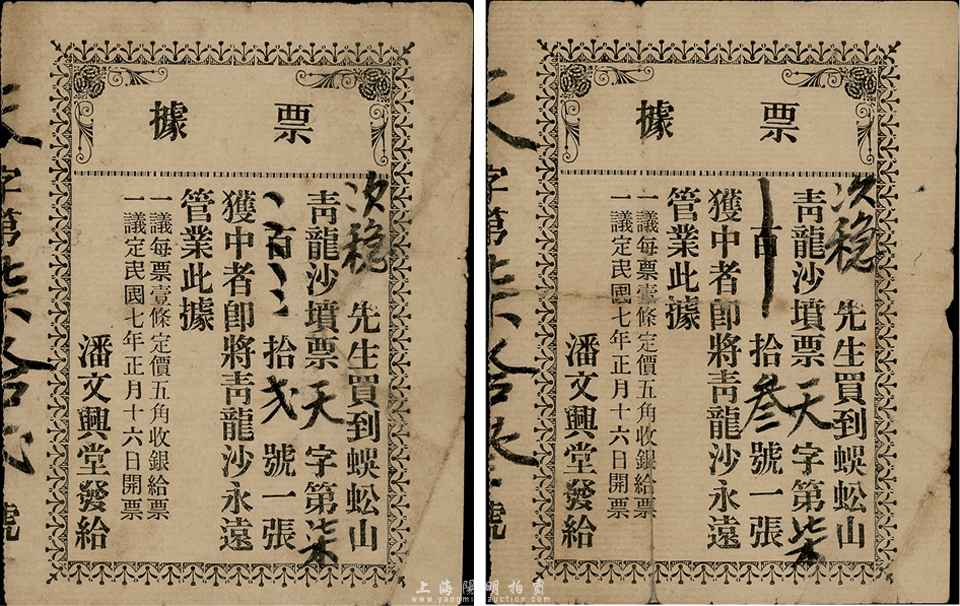 票據
次稳先生買到蜈蚣山
靑龍沙墳票天字第柒
百拾弍號一張
獲中者卽將靑龍沙永遠
管業此據
一議每票壹條定價五角收銀給票
一議定民國七年正月十六日開票
潘文興堂發給
字第柒拾弍號
票據
次稳先生買到蜈蚣山
靑龍沙墳票天字第柒
百拾叁號一張
獲中者卽將靑龍沙永遠
管業此據
一議每票壹條定價五角收銀給票
一議定民國七年正月十六日開票
潘文興堂發給
字第柒拾號
上海陽明拍賣
www.yangmingauction.com